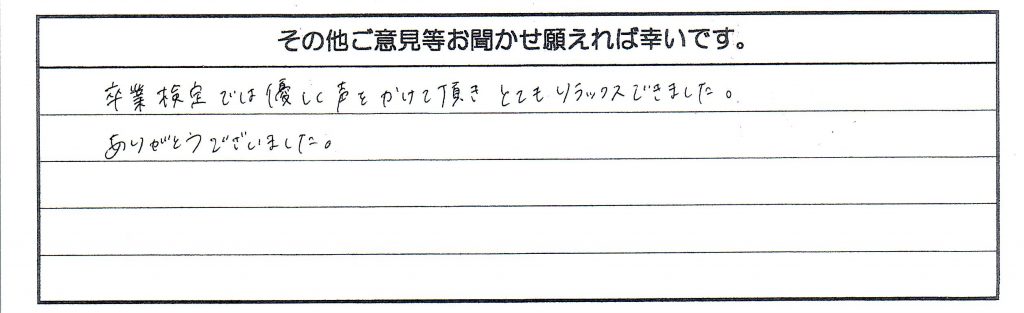 その他ご意見等お聞かせ願えれば幸いです。
卒業検定では優しく声をかけて頂きとてもリラックスできました。
ありがとうございました。